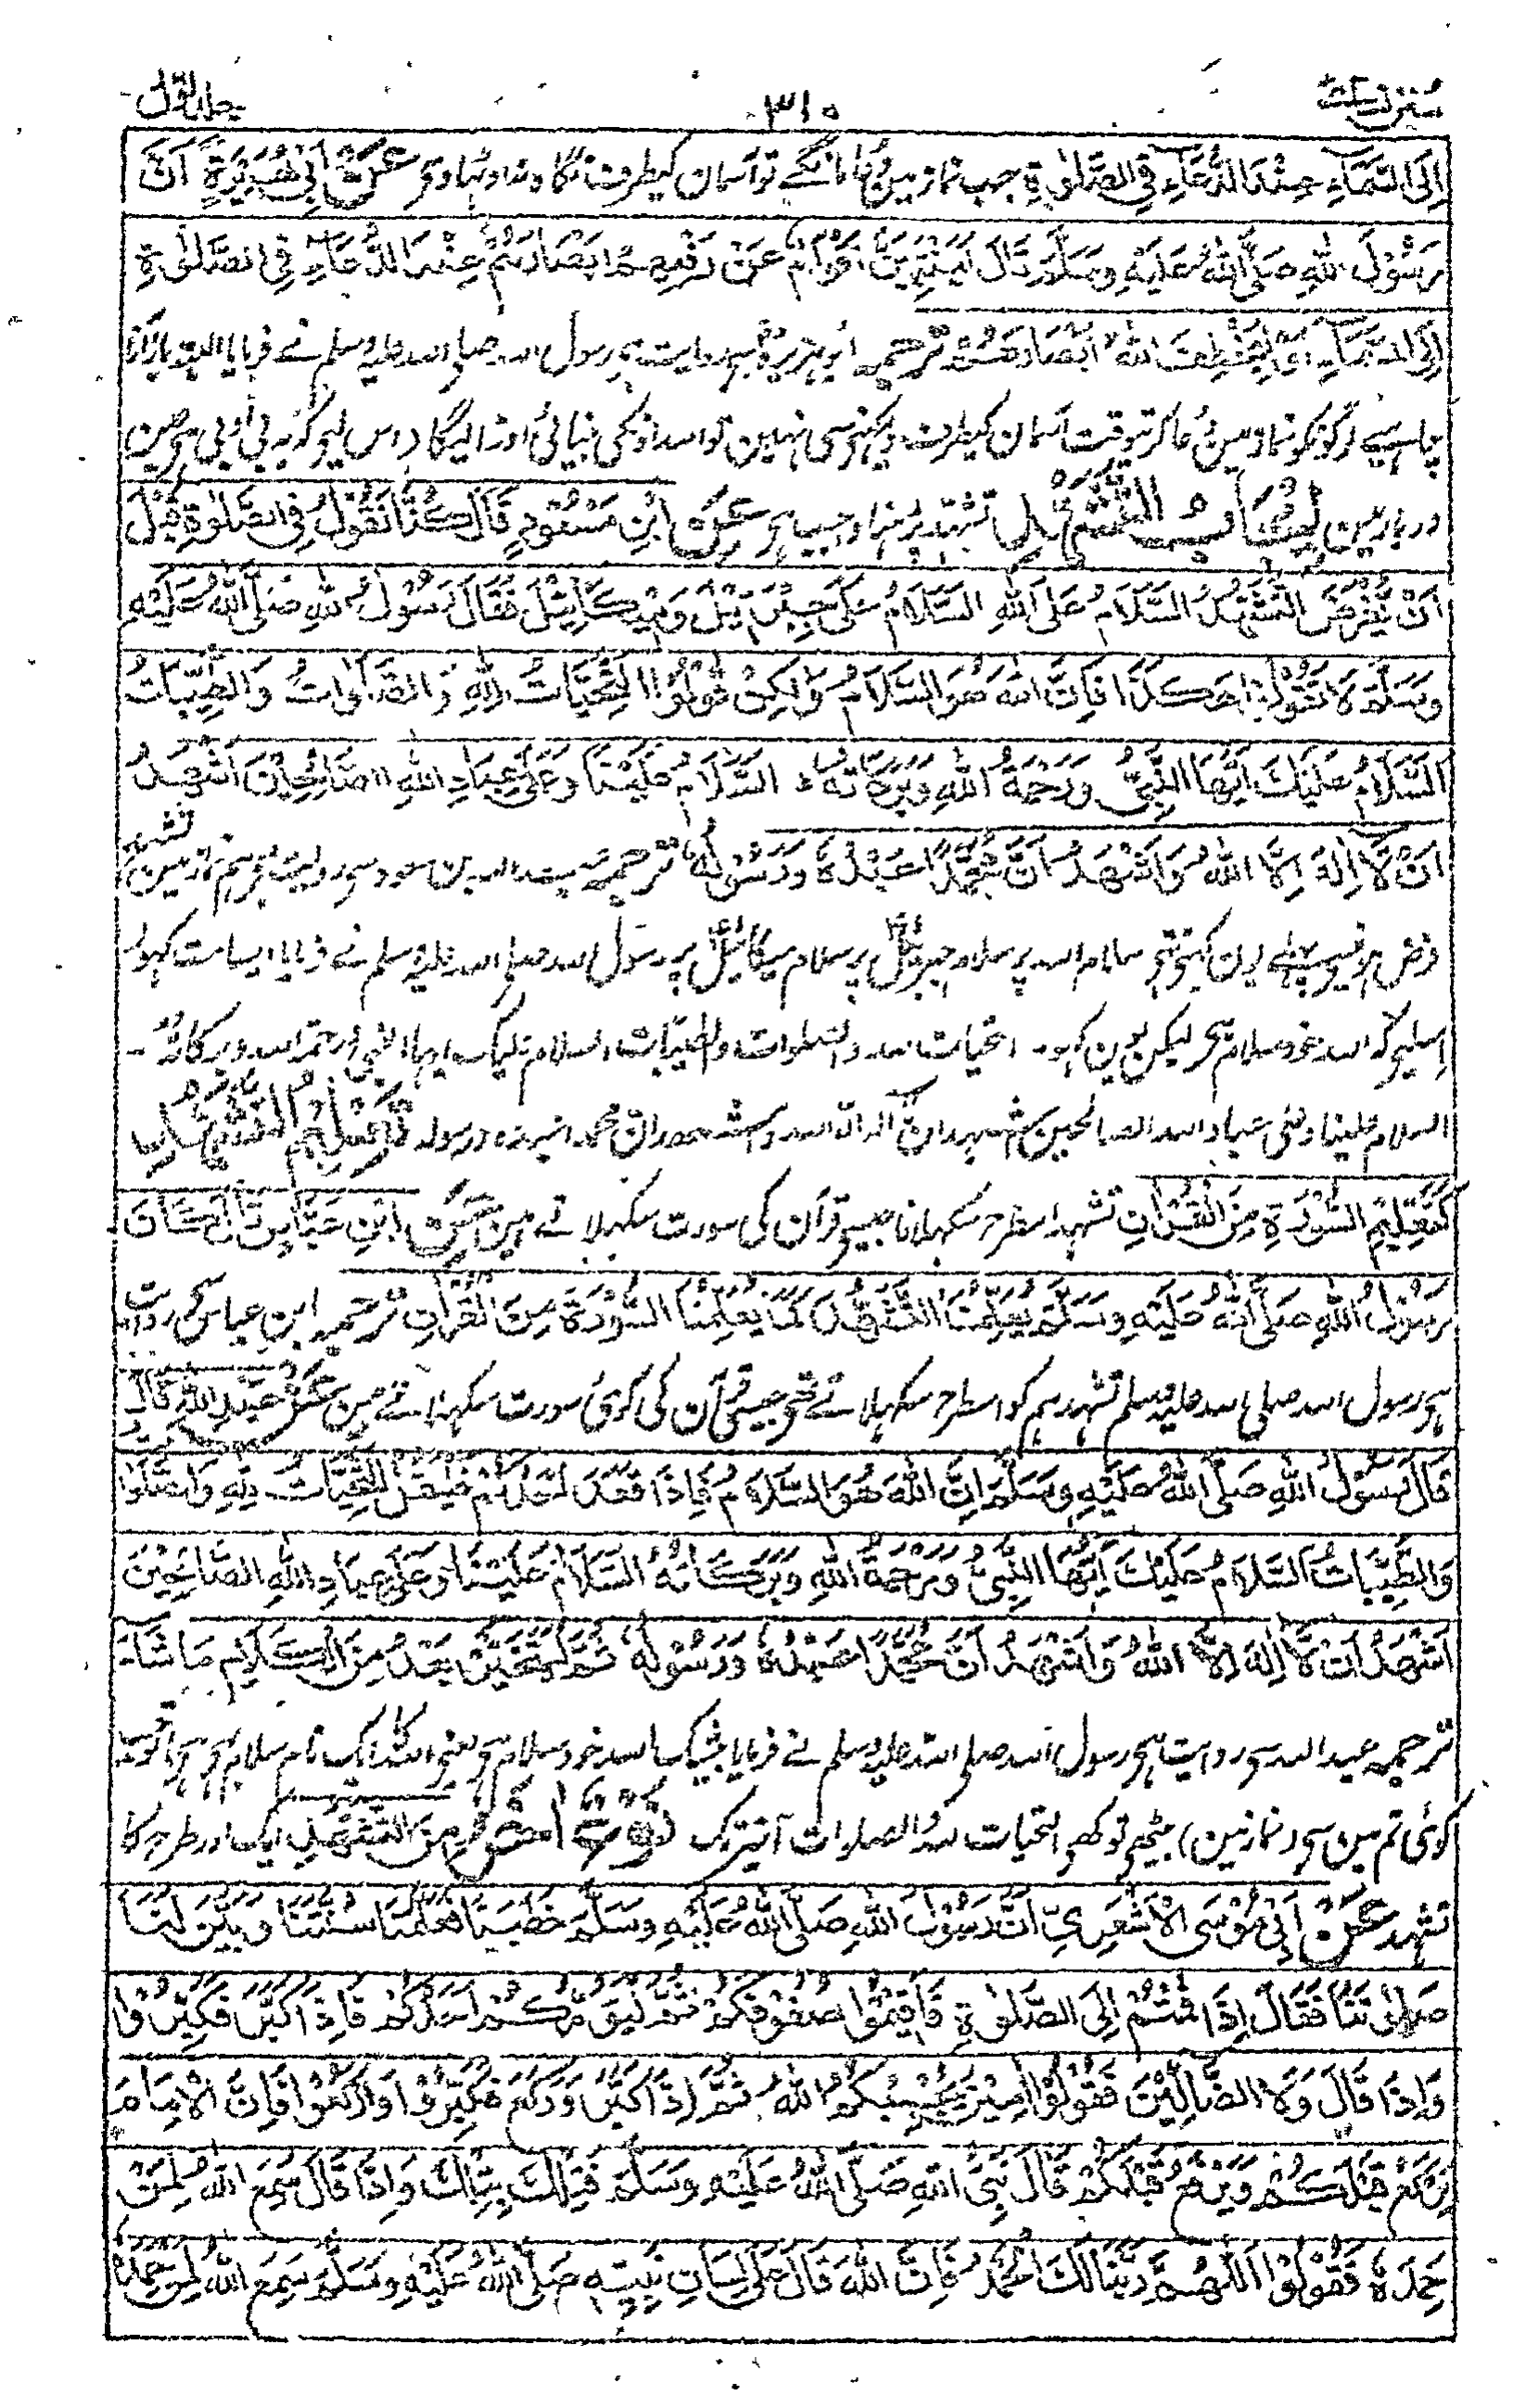 سنن نسائی ۳۱۰ جلد اول
اِلَی السَّمَآءِ عِنْدَ الدُّعَآءِ فِی الصَّلٰوةِ جب نماز مین دُعا مانگے تو آسمان کیطرف نگاہ نہ اوٹھاوی عَنْ اَبِیْ هُرَیْرَةَ اَنَّ
رَسُوْلَ اللّٰهِ صَلَّی اللّٰهُ عَلَیْهِ وَسَلَّمَ قَالَ لَیَنْتَهِیَنَّ اَقْوَامٌ عَنْ رَفْعِهِمْ اَبْصَارَهُمْ عِنْدَ الدُّعَآءِ فِی الصَّلٰوةِ
اِلَی السَّمَآءِ اَوْ لَیَخْطَفَنَّ اللّٰهُ اَبْصَارَهُمْ ترجمہ ابو ہریرہؓ سے روایت ہی رسول اللہ صلی اللہ علیہ وسلم نے فرمایا البتہ باز آنا
چاہیے لوگونکو نماز مین دُعا کرتیوقت آسمان کیطرف دیکھنوسی نہین تو اللہ اونکی بنیائی اوڑا لیگا (اس لیے کہ یہ بی ادبی ہی عین
دربار مین اِیْجَابُ التَّشَهُّدِ تشہد پڑہنا واجب ہی عَنِ ابْنِ مَسْعُوْدٍ قَالَ کُنَّا نَقُوْلُ فِی الصَّلٰوةِ قَبْلَ
اَنْ یُّفْرَضَ التَّشَهُّدُ السَّلَامُ عَلَی اللّٰهِ السَّلَامُ عَلٰی جِبْرَئِیْلَ وَمِیْکَائِیْلَ فَقَالَ رَسُوْلُ اللّٰهِ صَلَّی اللّٰهُ عَلَیْهِ
وَسَلَّمَ لَا تَقُوْلُوْا هٰکَذَا فَاِنَّ اللّٰهَ هُوَ السَّلَامُ وَلٰکِنْ قُوْلُوْا التَّحِیَّاتُ لِلّٰهِ وَالصَّلَوَاتُ وَالطَّیِّبَاتُ
السَّلَامُ عَلَیْكَ اَیُّهَا النَّبِیُّ وَرَحْمَةُ اللّٰهِ وَبَرَکَاتُهُ السَّلَامُ عَلَیْنَا وَعَلٰی عِبَادِ اللّٰهِ الصَّالِحِیْنَ اَشْهَدُ
اَنْ لَّا اِلٰهَ اِلَّا اللّٰهُ وَاَشْهَدُ اَنَّ مُحَمَّدًا عَبْدُهُ وَرَسُوْلُهُ ترجمہ عبد اللہ بن مسعود سے روایت ہی ہم نماز مین تشہد
فرض ہونیسے پہلے یون کہتے تھے سلام اللہ پر سلام جبرئیل پر سلام میکائیل پر رسول اللہ صلی اللہ علیہ وسلم نے فرمایا ایسا مت کہو
اسلیے کہ اللہ خود سلام ہی لیکن یون کہو۔ التحیات للہ والصلوات والطیبات السلام علیک ایہا النبی ورحمۃ اللہ وبرکاتہ۔
السلام علینا وعلی عباد اللہ الصالحین اشہد ان لا الہ الا اللہ واشہد ان محمدا عبدہ ورسولہ تَعْلِیْمُ التَّشَهُّدِ
کَتَعْلِیْمِ السُّوْرَةِ مِنَ الْقُرْاٰنِ تشہد اسطرح سکہلانا جیسے قرآن کی سورت سکہلاتے ہین عَنِ ابْنِ عَبَّاسٍ قَالَ کَانَ
رَسُوْلُ اللّٰهِ صَلَّی اللّٰهُ عَلَیْهِ وَسَلَّمَ یُعَلِّمُنَا التَّشَهُّدَ کَمَا یُعَلِّمُنَا السُّوْرَةَ مِنَ الْقُرْاٰنِ ترجمہ ابن عباس سے روایت
ہی رسول اللہ صلی اللہ علیہ وسلم تشہد ہم کو اسطرح سکہلاتے تھے جیسے قرآن کی کوئی سورت سکہلاتے ہین عَنْ عَبْدِ اللّٰهِ قَالَ
قَالَ رَسُوْلُ اللّٰهِ صَلَّی اللّٰهُ عَلَیْهِ وَسَلَّمَ اِنَّ اللّٰهَ هُوَ السَّلَامُ فَاِذَا قَعَدَ اَحَدُکُمْ فَلْیَقُلْ التَّحِیَّاتُ لِلّٰهِ وَالصَّلَوَاتُ
وَالطَّیِّبَاتُ السَّلَامُ عَلَیْكَ اَیُّهَا النَّبِیُّ وَرَحْمَةُ اللّٰهِ وَبَرَکَاتُهُ السَّلَامُ عَلَیْنَا وَعَلٰی عِبَادِ اللّٰهِ الصَّالِحِیْنَ
اَشْهَدُ اَنْ لَّا اِلٰهَ اِلَّا اللّٰهُ وَاَشْهَدُ اَنَّ مُحَمَّدًا عَبْدُهُ وَرَسُوْلُهُ ثُمَّ لْیَتَخَیَّرْ بَعْدُ مِنَ الْکَلَامِ مَا شَآءَ
ترجمہ عبد اللہ سے روایت ہی رسول اللہ صلی اللہ علیہ وسلم نے فرمایا بیشک اللہ خود سلام ہی یعنی اللہ کا ایک نام سلام بھی ہی تو جب
کوئی تم مین سے (نماز مین) بیٹھے تو کھے التحیات للہ والصلوات آخیر تک نَوْعٌ اٰخَرُ مِنَ التَّشَهُّدِ ایک اور طرح کا
تشہد عَنْ اَبِیْ مُوْسَی الْاَشْعَرِیِّ اَنَّ رَسُوْلَ اللّٰهِ صَلَّی اللّٰهُ عَلَیْهِ وَسَلَّمَ خَطَبَنَا فَعَلَّمَنَا سُنَّتَنَا وَبَیَّنَ لَنَا
صَلٰوتَنَا فَقَالَ اِذَا قُمْتُمْ اِلَی الصَّلٰوةِ فَاَقِیْمُوْا صُفُوْفَکُمْ ثُمَّ لْیَؤُمَّکُمْ اَحَدُکُمْ فَاِذَا کَبَّرَ فَکَبِّرُوْا
وَاِذَا قَالَ وَلَا الضَّآلِّیْنَ فَقُوْلُوْا اٰمِیْنَ یُجِبْکُمُ اللّٰهُ ثُمَّ اِذَا کَبَّرَ وَرَکَعَ فَکَبِّرُوْا وَارْکَعُوْا فَاِنَّ الْاِمَامَ
یَرْکَعُ قَبْلَکُمْ وَیَرْفَعُ قَبْلَکُمْ قَالَ نَبِیُّ اللّٰهِ صَلَّی اللّٰهُ عَلَیْهِ وَسَلَّمَ فَتِلْكَ بِتِلْكَ وَاِذَا قَالَ سَمِعَ اللّٰهُ لِمَنْ
حَمِدَهُ فَقُوْلُوْا اَللّٰهُمَّ رَبَّنَا لَكَ الْحَمْدُ فَاِنَّ اللّٰهَ قَالَ عَلٰی لِسَانِ نَبِیِّهِ صَلَّی اللّٰهُ عَلَیْهِ وَسَلَّمَ سَمِعَ اللّٰهُ لِمَنْ حَمِدَهُ